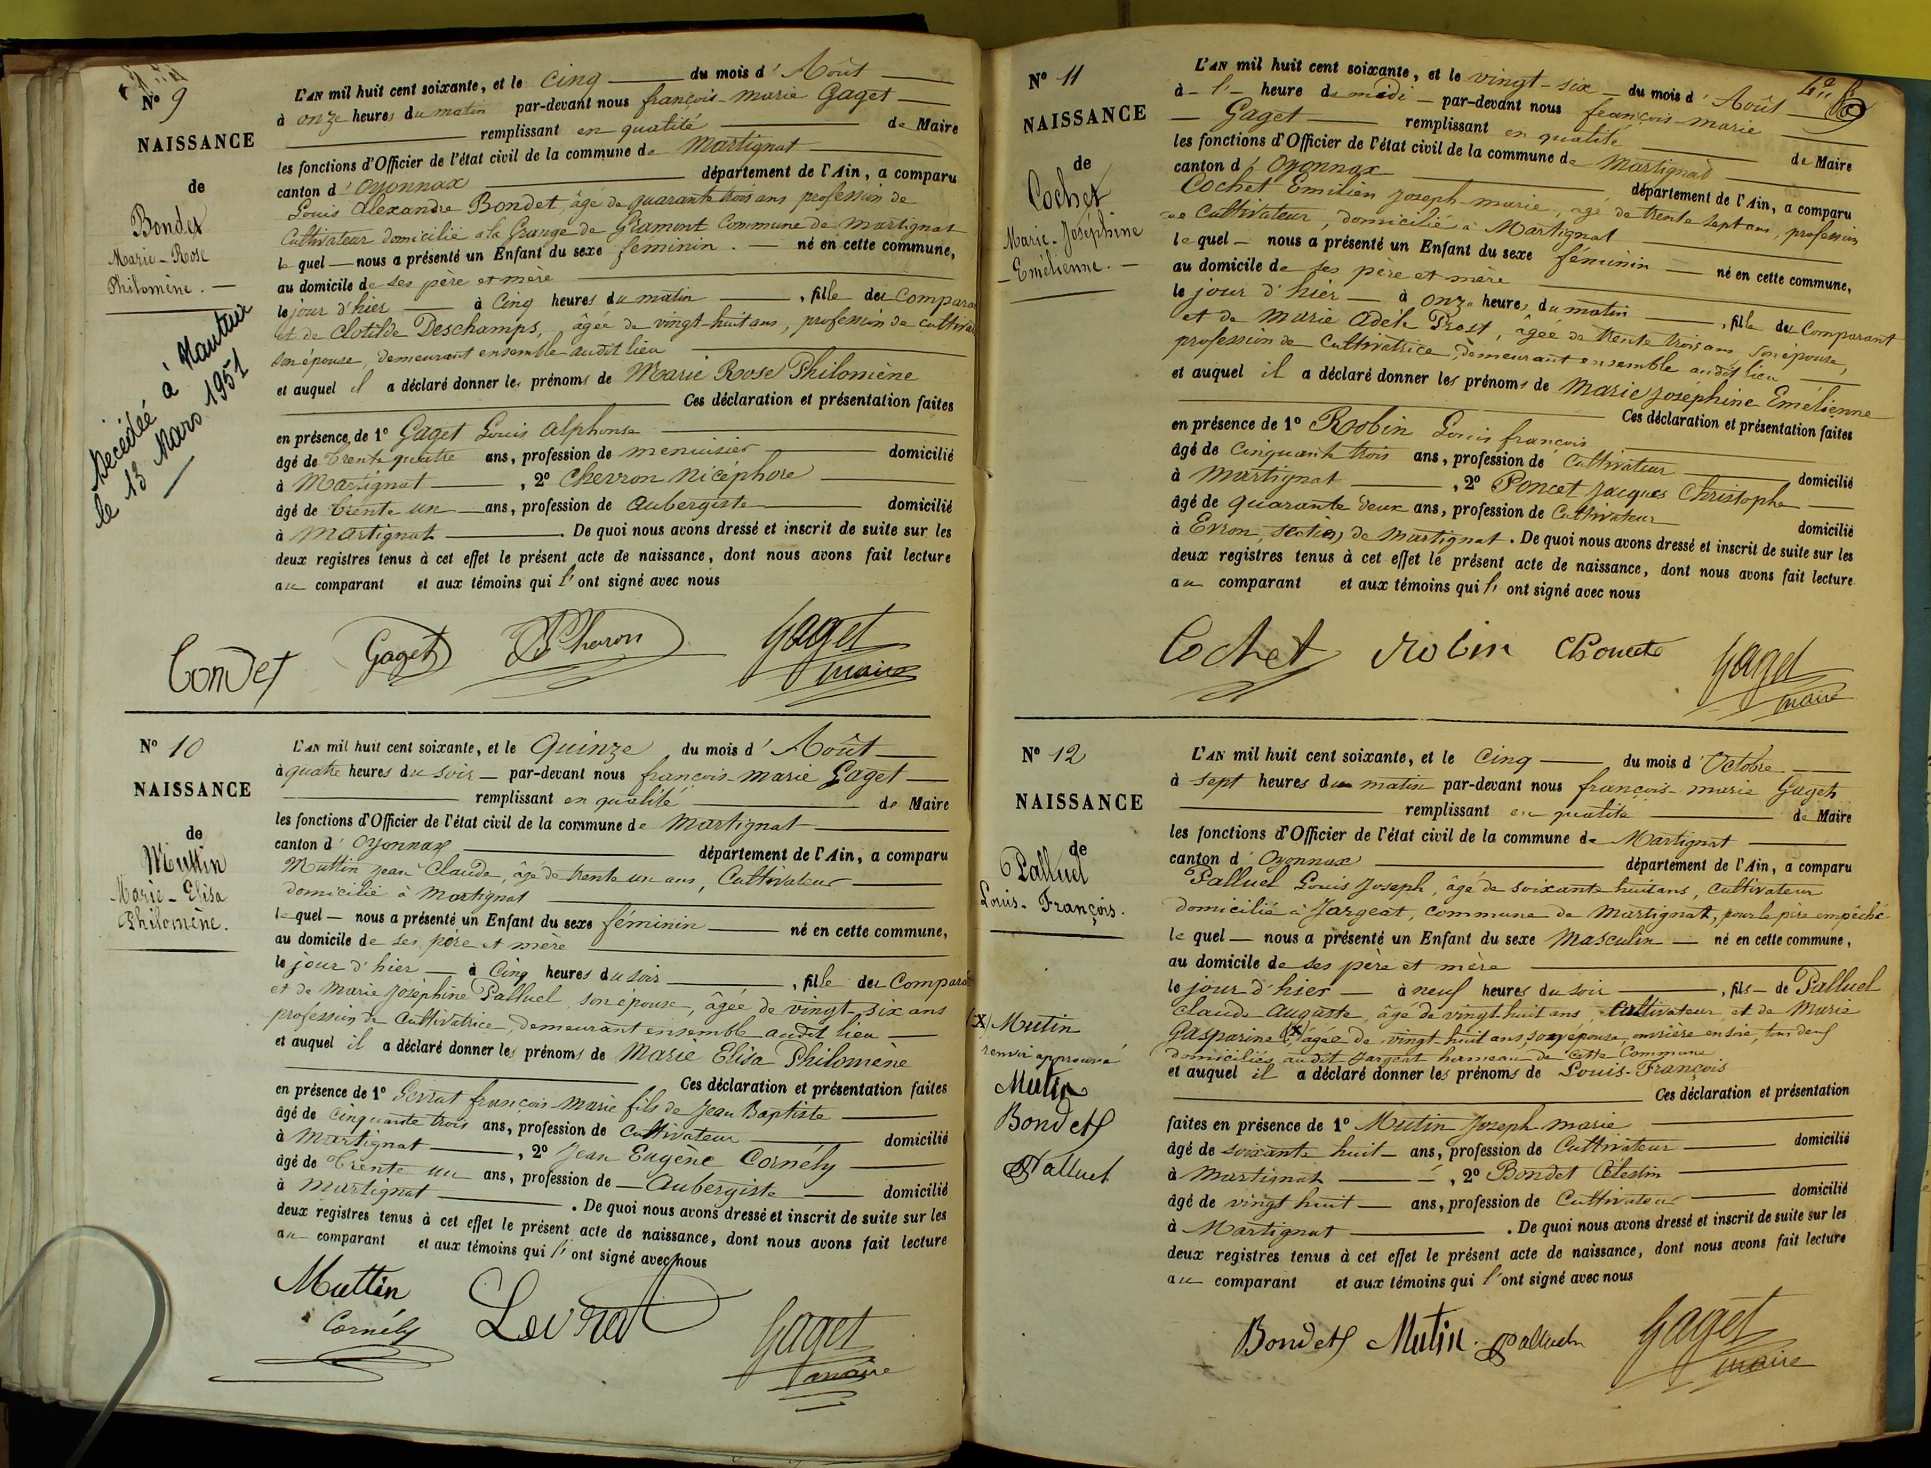 N° 9
NAISSANCE
de
Bondet
Marie-Rose
Philomène. —
Décédée à Nantua
le 13 Mars 1951
L'AN mil huit cent soixante, et le cinq du mois d'Août
à onze heures du matin par-devant nous françois-marie Gaget
remplissant en qualité de Maire
les fonctions d'Officier de l'état civil de la commune de Martignat
canton d'Oyonnax département de l'Ain, a comparu
Louis Alexandre Bondet âgé de quarante trois ans profession de
Cultivateur domicilié à la Grange de Gramont Commune de Martignat
lequel nous a présenté un Enfant du sexe féminin. né en cette commune,
au domicile de ses père et mère
le jour d'hier à Cinq heures du matin, fille du Compara
et de Clotilde Deschamps, âgée de vingt-huit ans, profession de cultiva
son épouse, demeurant ensemble audit lieu
et auquel il a déclaré donner les prénoms de Marie Rose Philomène
Ces déclaration et présentation faites
en présence de 1° Gaget Louis Alphonse
âgé de trente quatre ans, profession de menuisier domicilié
à Martignat, 2° Chevron Nicéphore
âgé de trente un ans, profession de Aubergiste domicilié
à Martignat. De quoi nous avons dressé et inscrit de suite sur les
deux registres tenus à cet effet le présent acte de naissance, dont nous avons fait lecture
au comparant et aux témoins qui l'ont signé avec nous
Bondet Gaget Gaget
maire
N° 10
NAISSANCE
de
Muttin
Marie-Elisa
Philomène.
L'AN mil huit cent soixante, et le Quinze du mois d'Août
à quatre heures du soir par-devant nous françois-marie Gaget
remplissant en qualité de Maire
les fonctions d'Officier de l'état civil de la commune de Martignat
canton d'Oyonnax département de l'Ain, a comparu
Muttin Jean Claude, âgé de trente un ans, Cultivateur
domicilié à Martignat
lequel nous a présenté un Enfant du sexe féminin né en cette commune,
au domicile de ses père et mère
le jour d'hier à Cinq heures du soir, fille du Compara
et de Marie Joséphine Palluel, son épouse, âgée de vingt-six ans
profession de Cultivatrice, demeurant ensemble audit lieu
et auquel il a déclaré donner les prénoms de Marie Elisa Philomène
Ces déclaration et présentation faites
en présence de 1° Levrat françois Marie fils de Jean Baptiste
âgé de cinquante trois ans, profession de Cultivateur domicilié
à Martignat, 2° Jean Eugène Cornély
âgé de trente un ans, profession de Aubergiste domicilié
à Martignat. De quoi nous avons dressé et inscrit de suite sur les
deux registres tenus à cet effet le présent acte de naissance, dont nous avons fait lecture
au comparant et aux témoins qui l'ont signé avec nous
Muttin Levrat
Cornély Gaget
maire
N° 11
NAISSANCE
de
Cochet
Marie-Joséphine
Emélienne. —
L'AN mil huit cent soixante, et le vingt-six du mois d'Août
à l'heure de midi par-devant nous françois-marie
Gaget remplissant en qualité de Maire
les fonctions d'Officier de l'état civil de la commune de Martignat
canton d'Oyonnax département de l'Ain, a comparu
Cochet Emilien Joseph-marie, agé de trente sept ans, profession
de Cultivateur, domicilié à Martignat
lequel nous a présenté un Enfant du sexe féminin né en cette commune,
au domicile de ses père et mère
le jour d'hier à onze heures du matin, fille du Comparant
et de Marie Adèle Prost, âgée de trente trois ans, son épouse,
profession de Cultivatrice, demeurant ensemble audit lieu
et auquel il a déclaré donner les prénoms de Marie Joséphine Emélienne
Ces déclaration et présentation faites
en présence de 1° Robin Louis françois
âgé de cinquante trois ans, profession de Cultivateur domicilié
à Martignat, 2° Poncet Jacques Christophe
âgé de quarante deux ans, profession de Cultivateur domicilié
à Evron, section de Martignat. De quoi nous avons dressé et inscrit de suite sur les
deux registres tenus à cet effet le présent acte de naissance, dont nous avons fait lecture
au comparant et aux témoins qui l'ont signé avec nous
Cochet Robin Gaget
maire
N° 12
NAISSANCE
de
Palluel
Louis-François.
(x) Mutin
renvoi approuvé
Mutin
Bondet
Palluel
L'AN mil huit cent soixante, et le cinq du mois d'Octobre
à sept heures du matin par-devant nous françois-marie Gaget
remplissant en qualité de Maire
les fonctions d'Officier de l'état civil de la commune de Martignat
canton d'Oyonnax département de l'Ain, a comparu
Palluel Louis Joseph, âgé de soixante huit ans, cultivateur
domicilié à Jargeat, commune de Martignat, pour le père empêché
lequel nous a présenté un Enfant du sexe Masculin né en cette commune,
au domicile de ses père et mère
le jour d'hier à neuf heures du soir, fils de Palluel
Claude Auguste, âgé de vingt huit ans, cultivateur, et de Marie
Gasparine (x) âgée de vingt huit ans son épouse, ouvrière en soie, tous deux
domiciliés audit Jargeat hameau de cette Commune
et auquel il a déclaré donner les prénoms de Louis-François
Ces déclaration et présentation
faites en présence de 1° Mutin Joseph marie
âgé de soixante huit ans, profession de Cultivateur domicilié
à Martignat, 2° Bondet Célestin
âgé de vingt huit ans, profession de Cultivateur domicilié
à Martignat. De quoi nous avons dressé et inscrit de suite sur les
deux registres tenus à cet effet le présent acte de naissance, dont nous avons fait lecture
au comparant et aux témoins qui l'ont signé avec nous
Bondet Mutin Palluel Gaget
maire